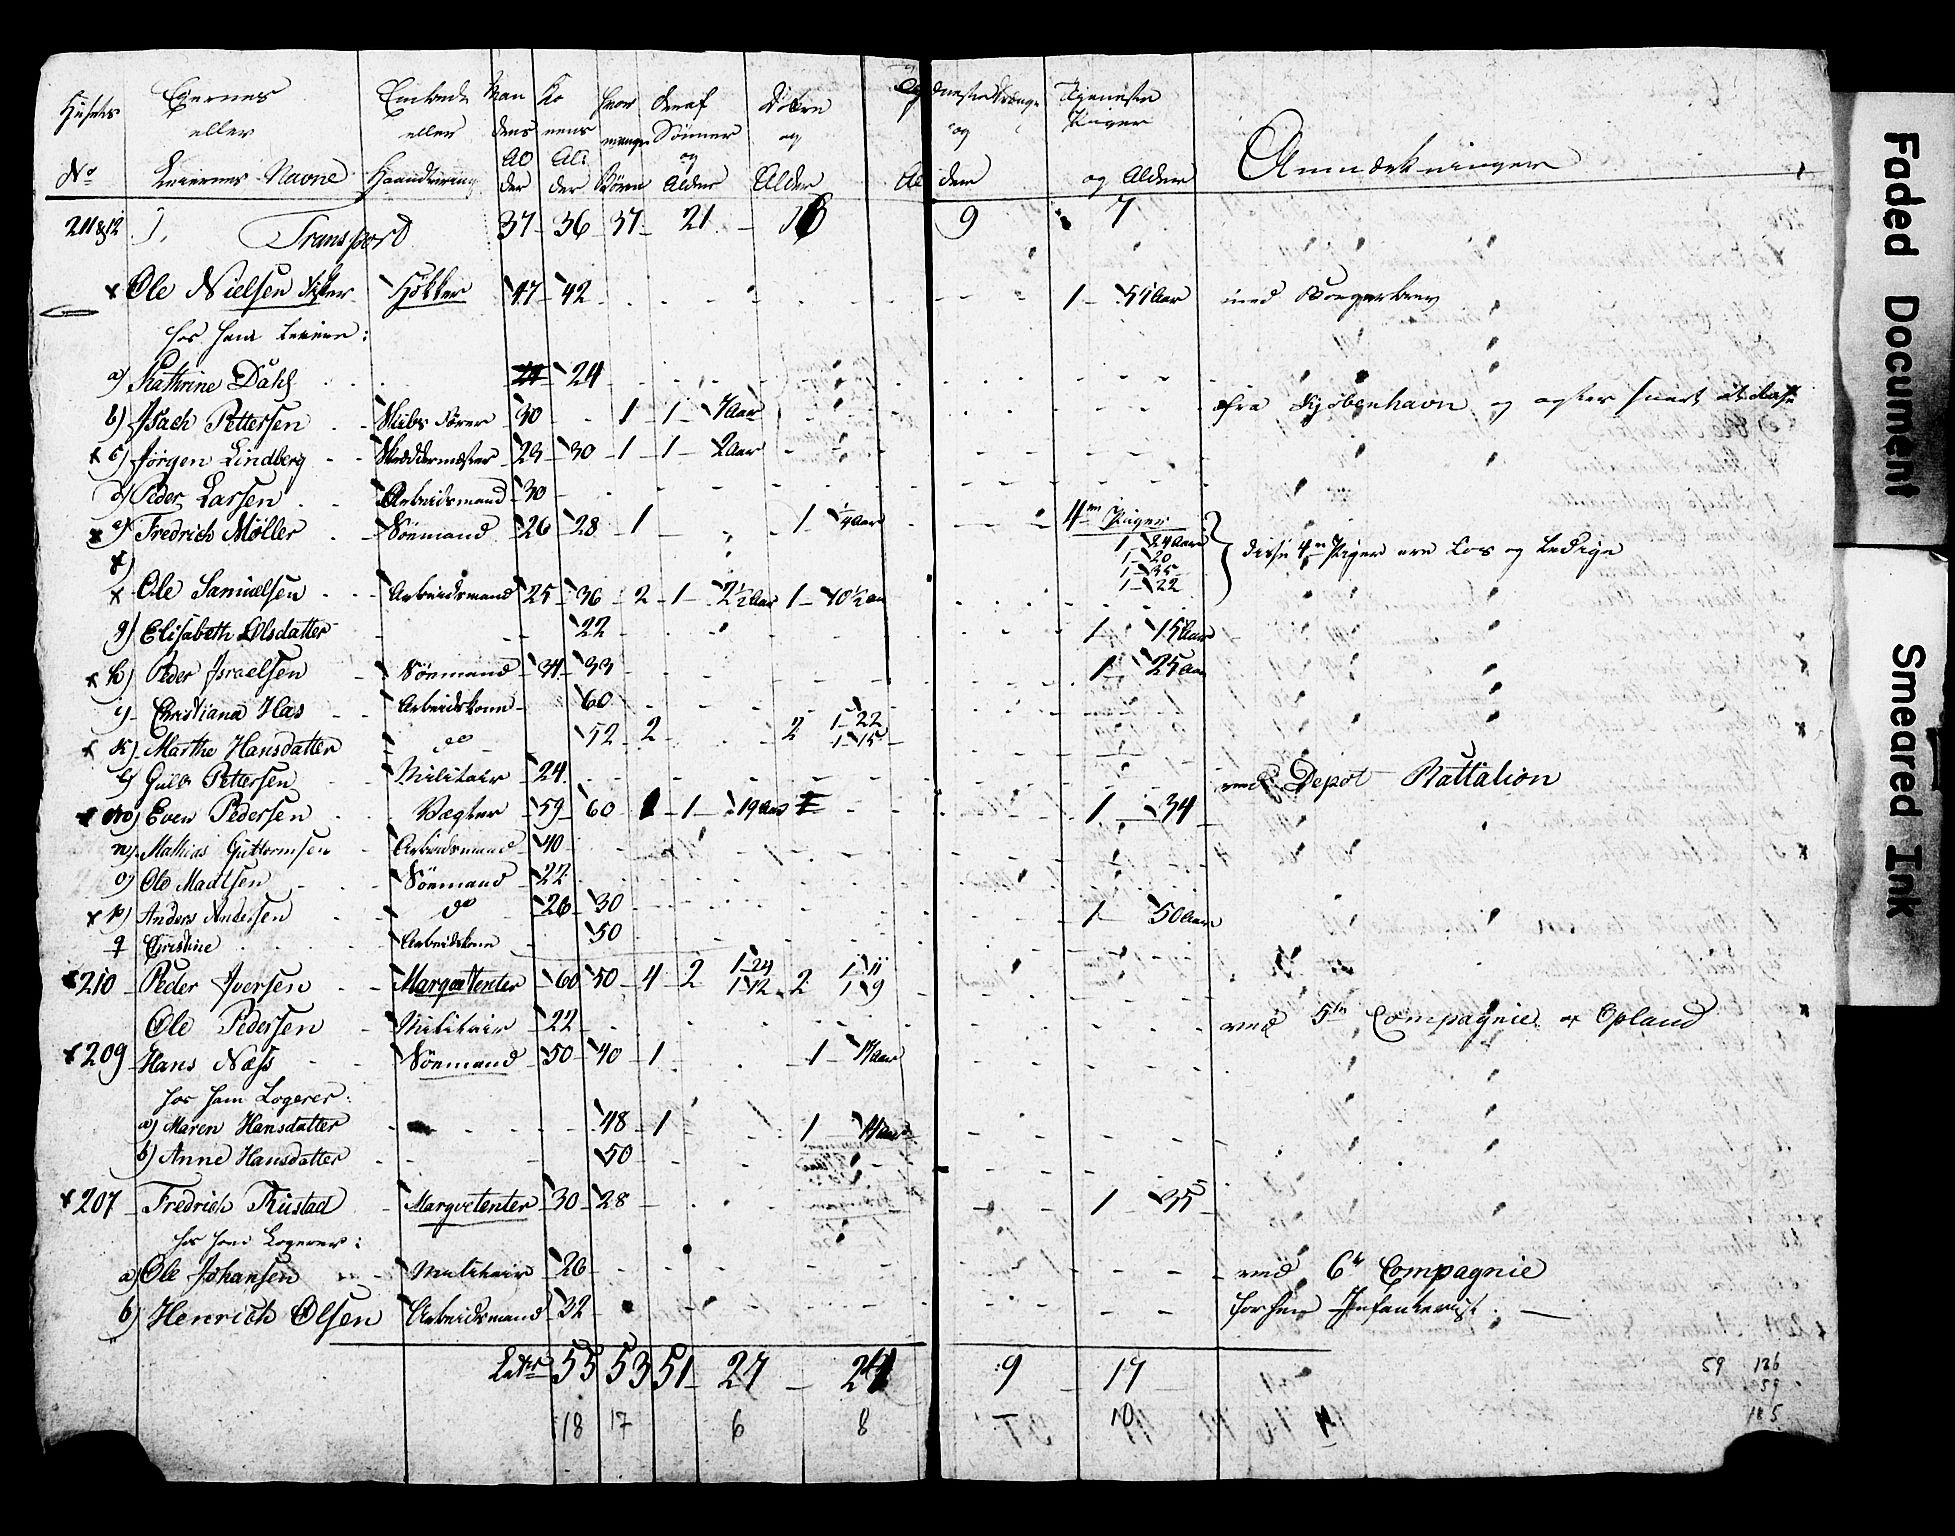 Husets No | Eiernes eller Leiernes Navne | Embede eller Haandtering | Mandens Alder | Konens Alder | hvor mange Børn | deraf Sønner og Alder | Døtre og Alder | og Alder | Tjeneste Piger og Alder | Anmærkninger
211 & 12 | Transport | 37 | 36 | 37 | 21 | 16 | 9 | 7
x Ole Nielsen | Høkker | 47 | 42 | 1 51 Aar | med Borgerbrev
hos ham Leiere:
a) Kathrine Dahl | 24
b) Isach Pettersen | Skibsfører | 30 | 1 | 1 7 Aar | fra Kjøbenhavn og
x c) Jørgen Lindberg | Skreddermester | 23 | 30 | 1 | 1 2 Aar
d) Peder Larsen | Arbeidsmand | 30
x e) Fredrich Møller | Söemand | 26 | 28 | 1 | 1 1/4 Aar | 4re Piger
1 24 Aar
1 20
1 35
1 22
disse 4re Piger ere Løs og Ledige
f)
x Ole Samuelsen | Arbeidsmand | 25 | 36 | 2 | 1 2½ Aar | 1 10½ Aar
g) Elisabeth Olsdatter | 22 | 1 15 Aar
x h) Peder Israelsen | Söemand | 34 | 33 | 1 25 Aar
i) Christiana Hæs | Arbeidskone | 60
x k) Marthe Hansdatter | do | 52 | 2 | 2 1 22
1 15
l) Gulb Pettersen | Militair | 24 | ved Depot Battalion
x m) Even Pedersen | Vægter | 59 | 60 | 1 | 1 19 Aar | 1 34
n) Mathias Guttormsen | Arbeidsmand | 40
o) Ole Madtsen | Söemand | 22
x p) Anders Andersen | do | 26 | 30 | 1 50 Aar
q Christine | Arbeidskone | 50
x 210 Peder Iversen | Marqvetenter | 60 | 50 | 4 | 2 1 24 | 2 1 11
1 12 | 1 9
Ole Pedersen | Militair | 22 | ved 5te Compagnie Opland
x 209 Hans Næss | Söemand | 50 | 40 | 1 | 1 17 Aar
hos ham Logerer:
a) Maren Hansdatter | 48 | 1 | 1 14 Aar
b) Anne Hansdatter | 50
x 207 Fredrich Thistad | Marqvetenter | 30 | 28 | 1 35
hos ham Logerer:
a) Ole Johansen | Militair | 26 | ved 6te Compagnie
b) Henrich Olsen | Arbeidsmand | 32 | forhen Infanterist
Latus | 55 | 53 | 51 | 27 | 24 | 9 | 17
18 | 17 | 6 | 8 | 10
59 126
59
185
Faded Document
Smeared Ink